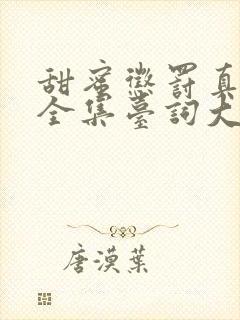 甜蜜懲罰真
全集臺詞大
唐漠葉